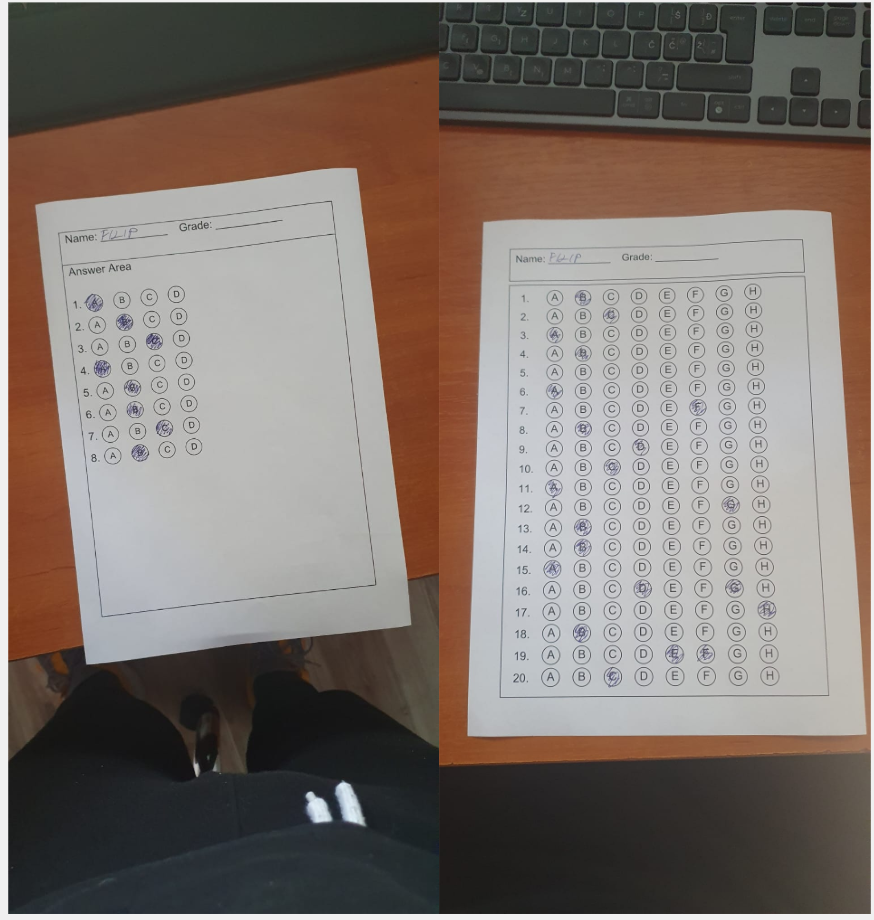 Name: FILIP Grade:
Answer Area
1. A B C D
2. A B C D
3. A B C D
4. A B C D
5. A B C D
6. A B C D
7. A B C D
8. A B C D
Z Š Đ
H J Č
N M
Name: FILIP Grade:
1. A B C D E F G H
2. A B C D E F G H
3. A B C D E F G H
4. A B C D E F G H
5. A B C D E F G H
6. A B C D E F G H
7. A B C D E F G H
8. A B C D E F G H
9. A B C D E F G H
10. A B C D E F G H
11. A B C D E F G H
12. A B C D E F G H
13. A B C D E F G H
14. A B C D E F G H
15. A B C D E F G H
16. A B C D E F G H
17. A B C D E F G H
18. A B C D E F G H
19. A B C D E F G H
20. A B C D E F G H